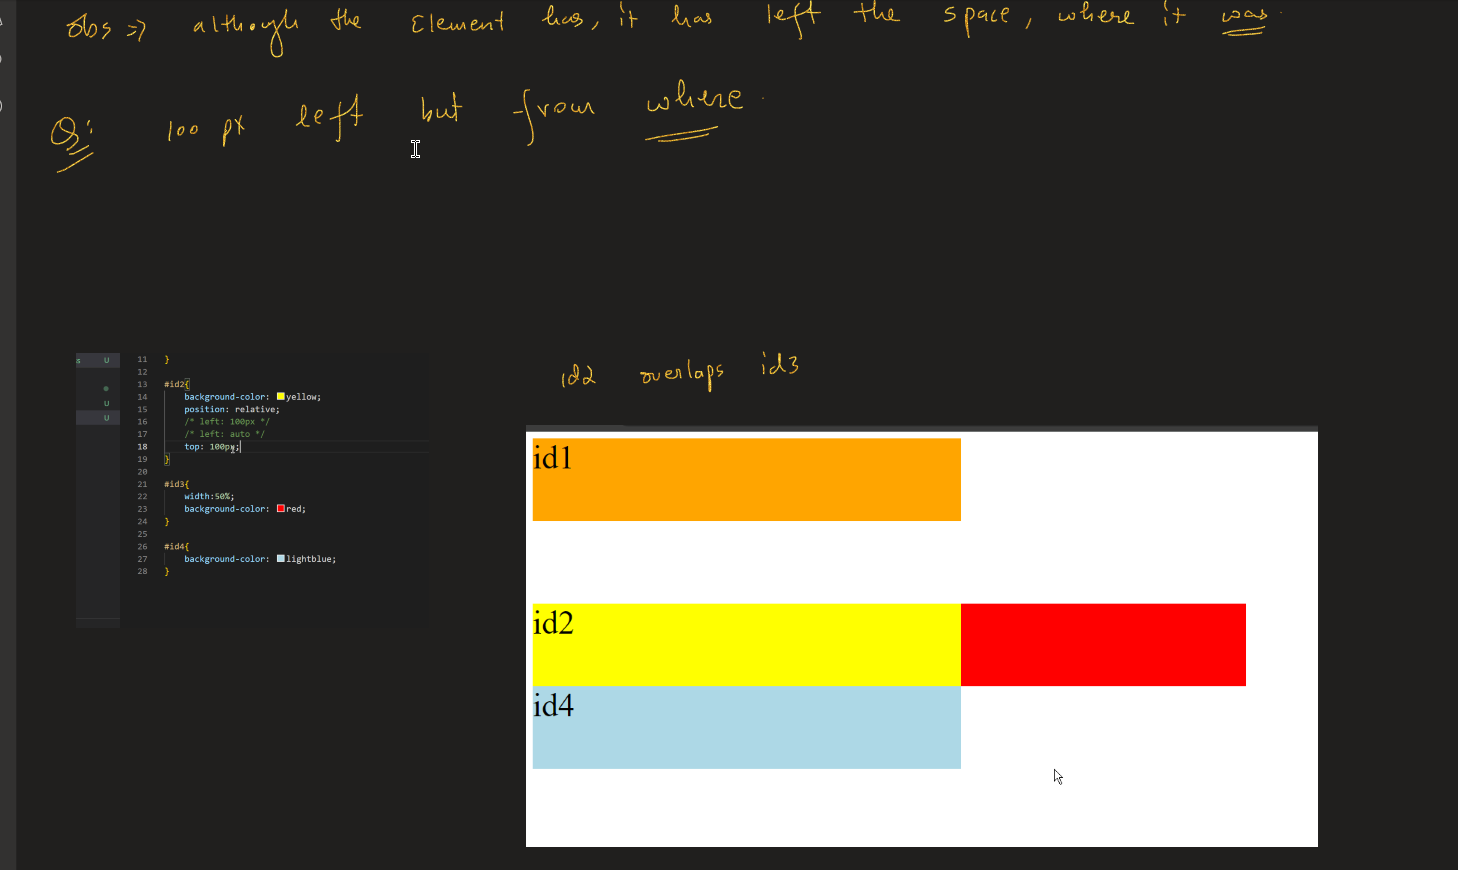 Obs => although the Element has, it has left the space, where it was.
Q: 100 px left but from where
s U
U
U
11 }
12
13 #id2{
14 background-color: yellow;
15 position: relative;
16 /* left: 100px */
17 /* left: auto */
18 top: 100px;
19 }
20
21 #id3{
22 width:50%;
23 background-color: red;
24 }
25
26 #id4{
27 background-color: lightblue;
28 }
id2 overlaps id3
id1
id2
id4